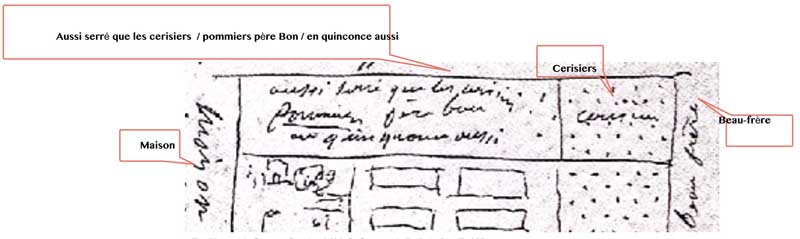 Aussi serré que les cerisiers / pommiers père Bon / en quinconce aussi
Cerisiers
Beau-frère
Maison
aussi serré que les cerisiers
Pommiers père bon
en quinconce aussi
cerisiers
Beau frère
Maison